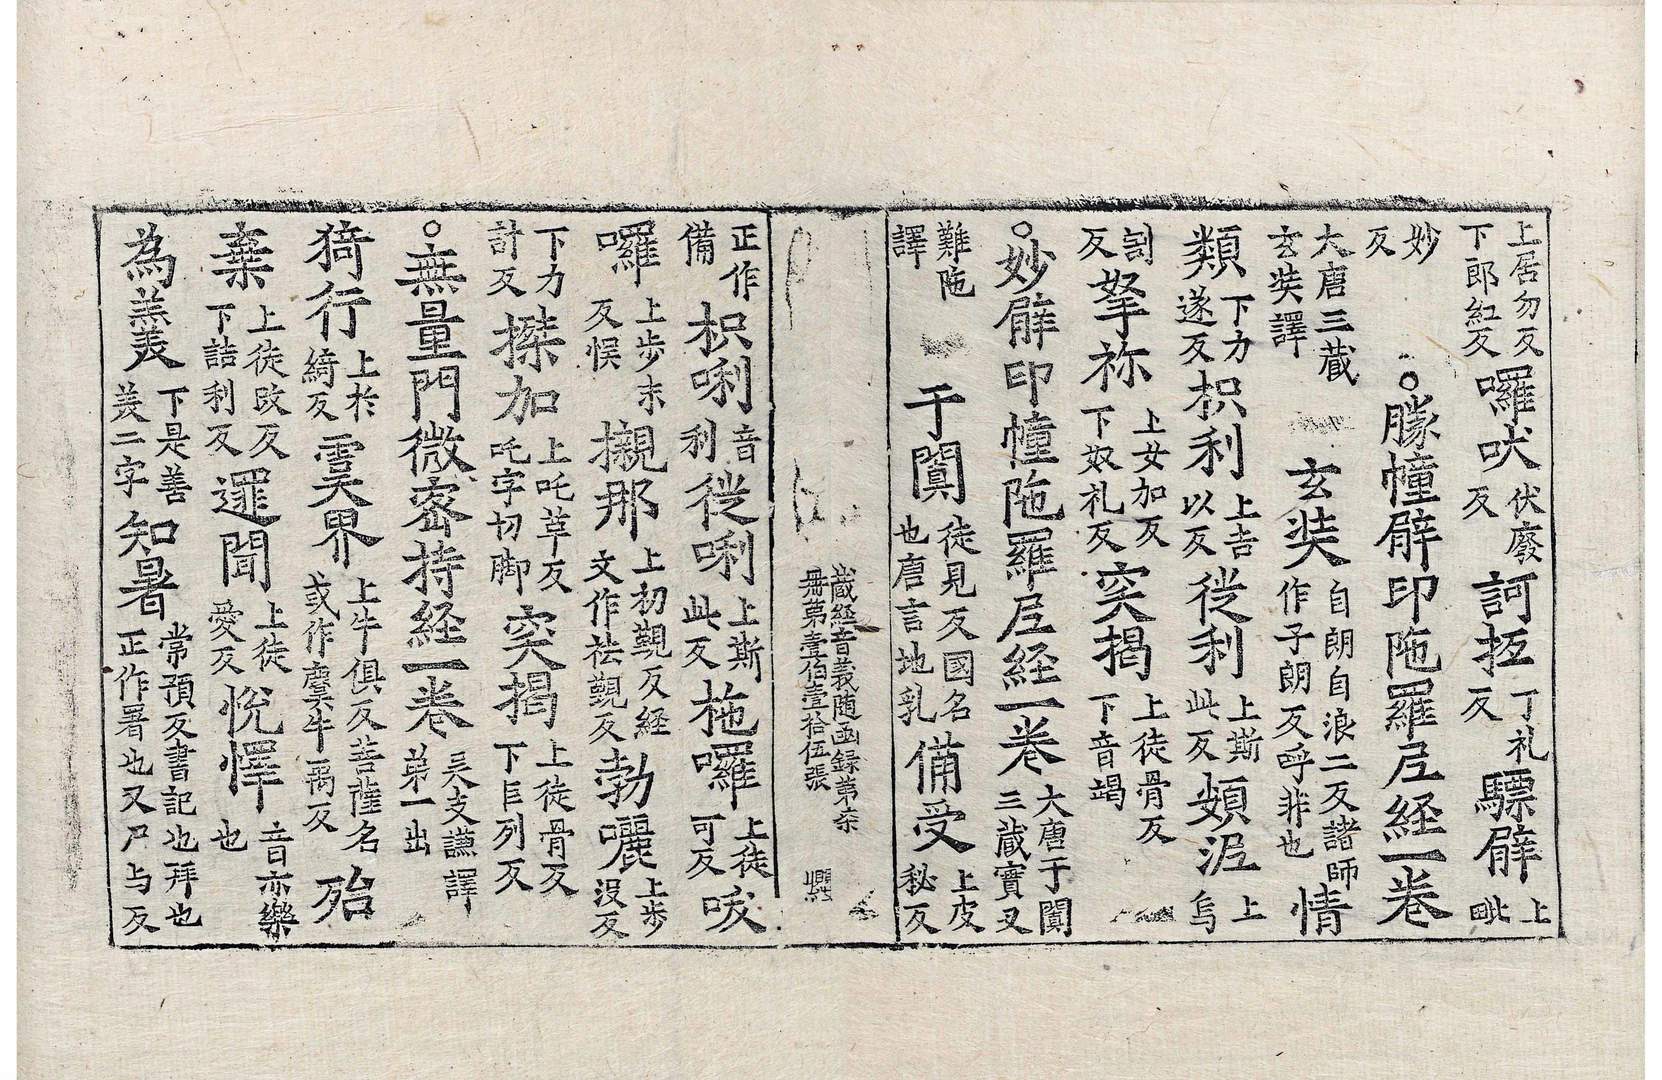 上居勿反下郎紅反囉吠伏廢反訶抵丁礼反驃臂上毗
妙反○朦幢臂印陁羅尼経一卷
大唐三藏玄奘譯玄奘自朗自浪二反諸師作子朗反呼非也情
類下力遂反枳利上吉以反徙利上斯此反頞泥上烏
割反拏祢上女加反下奴礼反突揭上徒骨反下音竭
○妙臂印幢陁羅尼経一卷大唐于闐三藏實叉
難陁譯于闐徒見反國名也唐言地乳備受上皮秘反
藏経音義随函録第柒冊第壹伯壹拾伍張
正作備枳唎音利徙唎上斯此反柂囉上徒可反唆
囉上步末反悮櫬那上初覲反経文作袪覲反勃囇上步沒反
下力計反搩加上吒草反吒字切脚突揭上徒骨反下巨列反
○無量門微密持経一卷吴支謙譯第一出
猗行上於綺反雲界上牛俱反菩薩名或作麌牛禹反殆
棄上徒改反下詰利反遝聞上徒愛反悅懌音亦樂也
為羨下是善羨二字知署常預反書記也拜也正作署也又尸与反